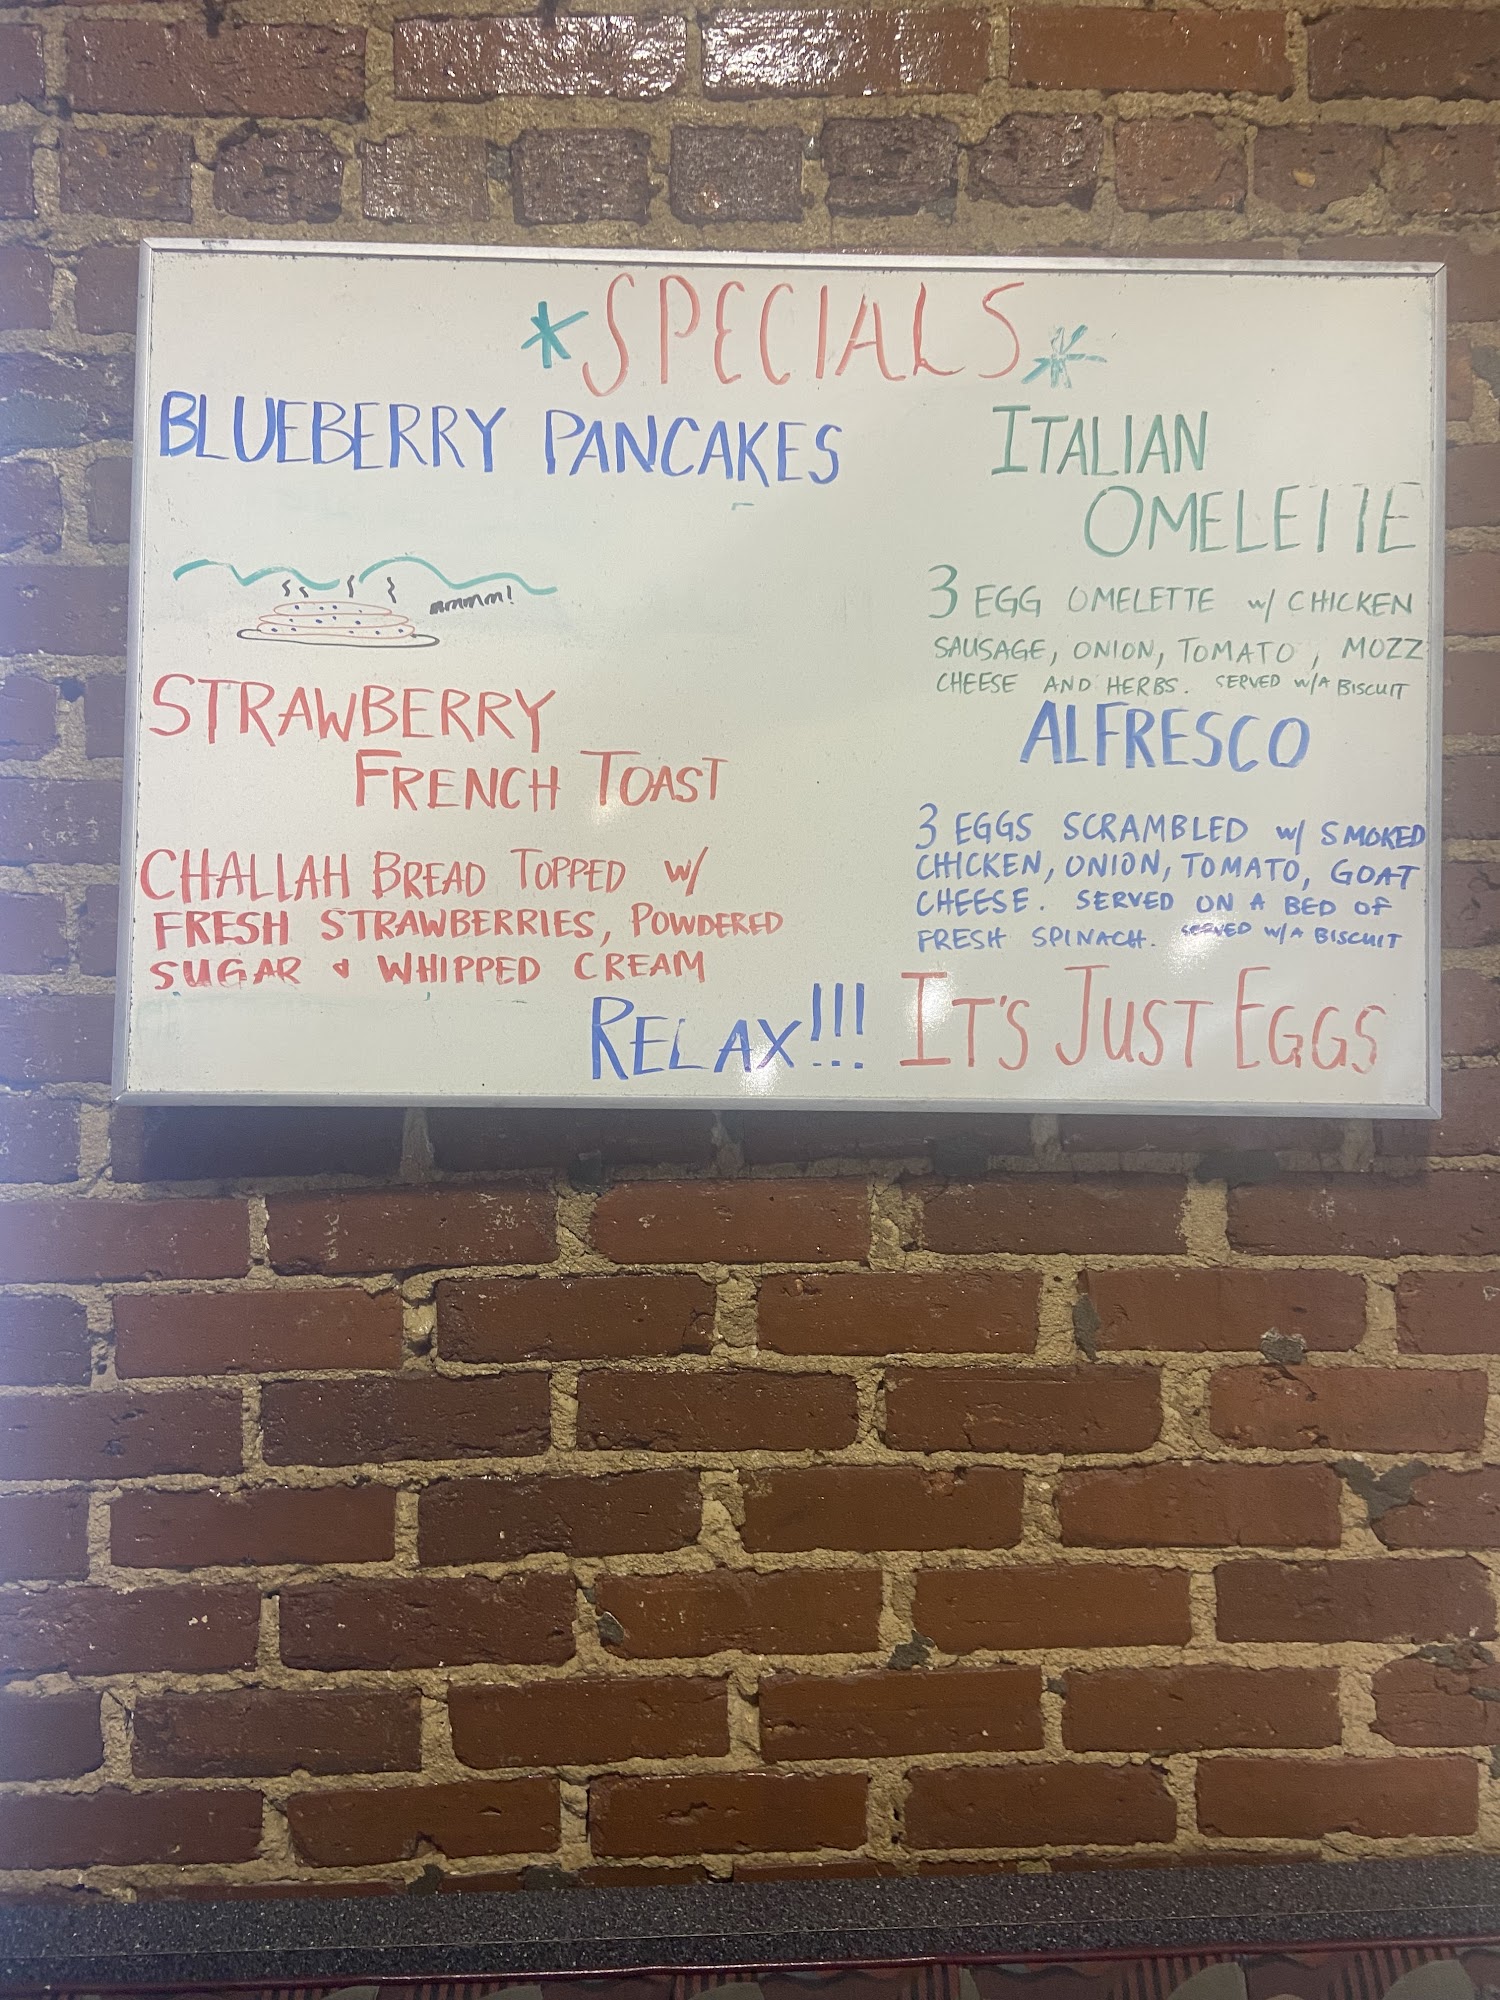 *SPECIALS*
BLUEBERRY PANCAKES
mmmm!
STRAWBERRY
FRENCH TOAST
CHALLAH BREAD TOPPED w/
FRESH STRAWBERRIES, POWDERED
SUGAR & WHIPPED CREAM
ITALIAN
OMELETTE
3 EGG OMELETTE w/ CHICKEN
SAUSAGE, ONION, TOMATO, MOZZ
CHEESE AND HERBS. SERVED w/A BISCUIT
ALFRESCO
3 EGGS SCRAMBLED w/ SMOKED
CHICKEN, ONION, TOMATO, GOAT
CHEESE. SERVED ON A BED OF
FRESH SPINACH. SERVED w/A BISCUIT
RELAX!!! IT'S JUST EGGS